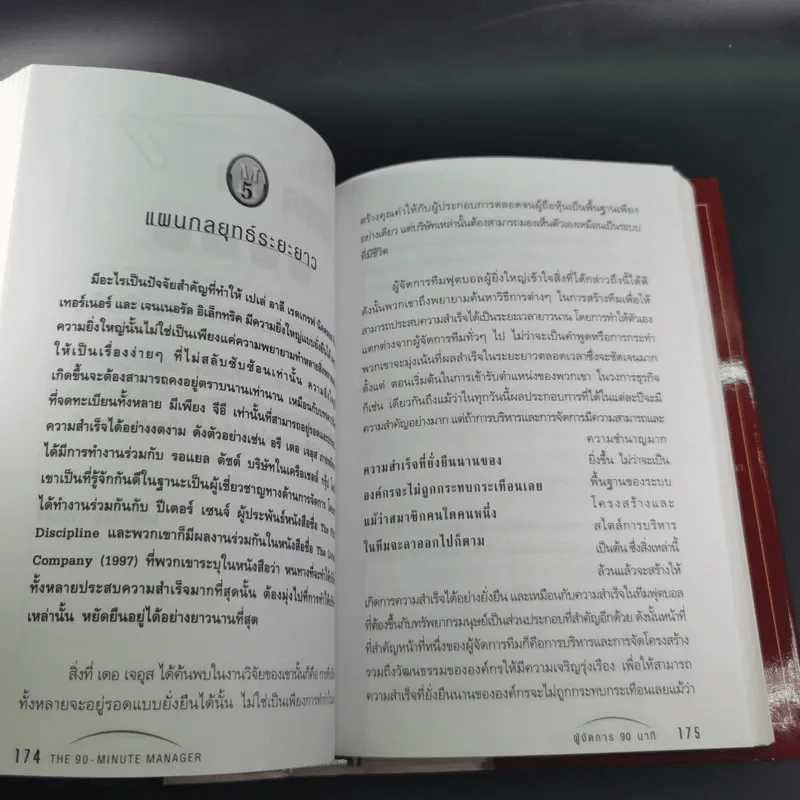 5
แผนกลยุทธ์ระยะยาว
มีอะไรเป็นปัจจัยสำคัญที่ทำให้ เปเล่ อาลี เรดเกรฟ
เทอร์เนอร์ และ เจนเนอรัล อิเล็กทริค มีความยิ่งใหญ่แบบยั่งยืน
ความยิ่งใหญ่นั้นไม่ใช่เป็นเพียงแค่ความพยายามทำหลายสิ่ง
ให้เป็นเรื่องง่ายๆ ที่ไม่สลับซับซ้อนเท่านั้น
เกิดขึ้นจะต้องสามารถคงอยู่ตราบนานเท่านาน เหมือนกับ
ที่จดทะเบียนทั้งหลาย มีเพียง จีอี เท่านั้นที่สามารถอยู่รอดและ
ความสำเร็จได้อย่างงดงาม ดังตัวอย่างเช่น อรี เดอ เจอุส
ได้มีการทำงานร่วมกับ รอแยล ดัชต์ บริษัทในเครือเชลล์ กรุ๊ป
เขาเป็นที่รู้จักกันดีในฐานะเป็นผู้เชี่ยวชาญทางด้านการจัดการ
ได้ทำงานร่วมกันกับ ปีเตอร์ เซนจ์ ผู้ประพันธ์หนังสือชื่อ The
Discipline และพวกเขาก็มีผลงานร่วมกันในหนังสือชื่อ The
Company (1997) ที่พวกเขาระบุในหนังสือว่า หนทางที่จะทำให้
ทั้งหลายประสบความสำเร็จมากที่สุดนั้น ต้องมุ่งไปที่การทำให้
เหล่านั้น หยัดยืนอยู่ได้อย่างยาวนานที่สุด
สิ่งที่ เดอ เจอุส ได้ค้นพบในงานวิจัยของเขานั้นก็คือ การที่
ทั้งหลายจะอยู่รอดแบบยั่งยืนได้นั้น ไม่ใช่เป็นเพียงการทำ
174 THE 90-MINUTE MANAGER
สร้างคุณค่าให้กับผู้ประกอบการตลอดจนผู้ถือหุ้นเป็นพื้นฐานเพียง
อย่างเดียว แต่บริษัทเหล่านั้นต้องสามารถมองเห็นตัวเองเหมือนเป็นระบบ
ที่มีชีวิต
ผู้จัดการทีมฟุตบอลผู้ยิ่งใหญ่เข้าใจสิ่งที่ได้กล่าวถึงนี้ได้ดี
ดังนั้นพวกเขาถึงพยายามค้นหาวิธีการต่างๆ ในการสร้างทีมเพื่อให้
สามารถประสบความสำเร็จได้เป็นระยะเวลายาวนาน โดยการทำให้ตัวเอง
แตกต่างจากผู้จัดการทีมทั่วๆ ไป ไม่ว่าจะเป็นคำพูดหรือการกระทำ
พวกเขาจะมุ่งเน้นที่ผลสำเร็จในระยะยาวตลอดเวลาซึ่งจะชัดเจนมาก
ตั้งแต่ ตอนเริ่มต้นในการเข้ารับตำแหน่งของพวกเขา ในวงการธุรกิจ
ก็เช่น เดียวกันถึงแม้ว่าในทุกวันนี้ผลประกอบการที่ได้ในแต่ละปีจะมี
ความสำคัญอย่างมาก แต่ถ้าการบริหารและการจัดการมีความสามารถและ
ความชำนาญมาก
ยิ่งขึ้น ไม่ว่าจะเป็น
พื้นฐานของระบบ
โครงสร้างและ
สไตล์การบริหาร
เป็นต้น ซึ่งสิ่งเหล่านี้
ล้วนแล้วจะสร้างให้
ความสำเร็จที่ยั่งยืนนานของ
องค์กรจะไม่ถูกกระทบกระเทือนเลย
แม้ว่าสมาชิกคนใดคนหนึ่ง
ในทีมจะลาออกไปก็ตาม
เกิดการความสำเร็จได้อย่างยั่งยืน และเหมือนกับความสำเร็จในทีมฟุตบอล
ที่ต้องขึ้นกับทรัพยากรมนุษย์เป็นส่วนประกอบที่สำคัญอีกด้วย ดังนั้นหน้าที่
ที่สำคัญหน้าที่หนึ่งของผู้จัดการทีมก็คือการบริหารและการจัดโครงสร้าง
รวมถึงวัฒนธรรมขององค์กรให้มีความเจริญรุ่งเรือง เพื่อให้สามารถ
ความสำเร็จที่ยั่งยืนนานขององค์กรจะไม่ถูกกระทบกระเทือนเลยแม้ว่า
ผู้จัดการ 90 นาที 175